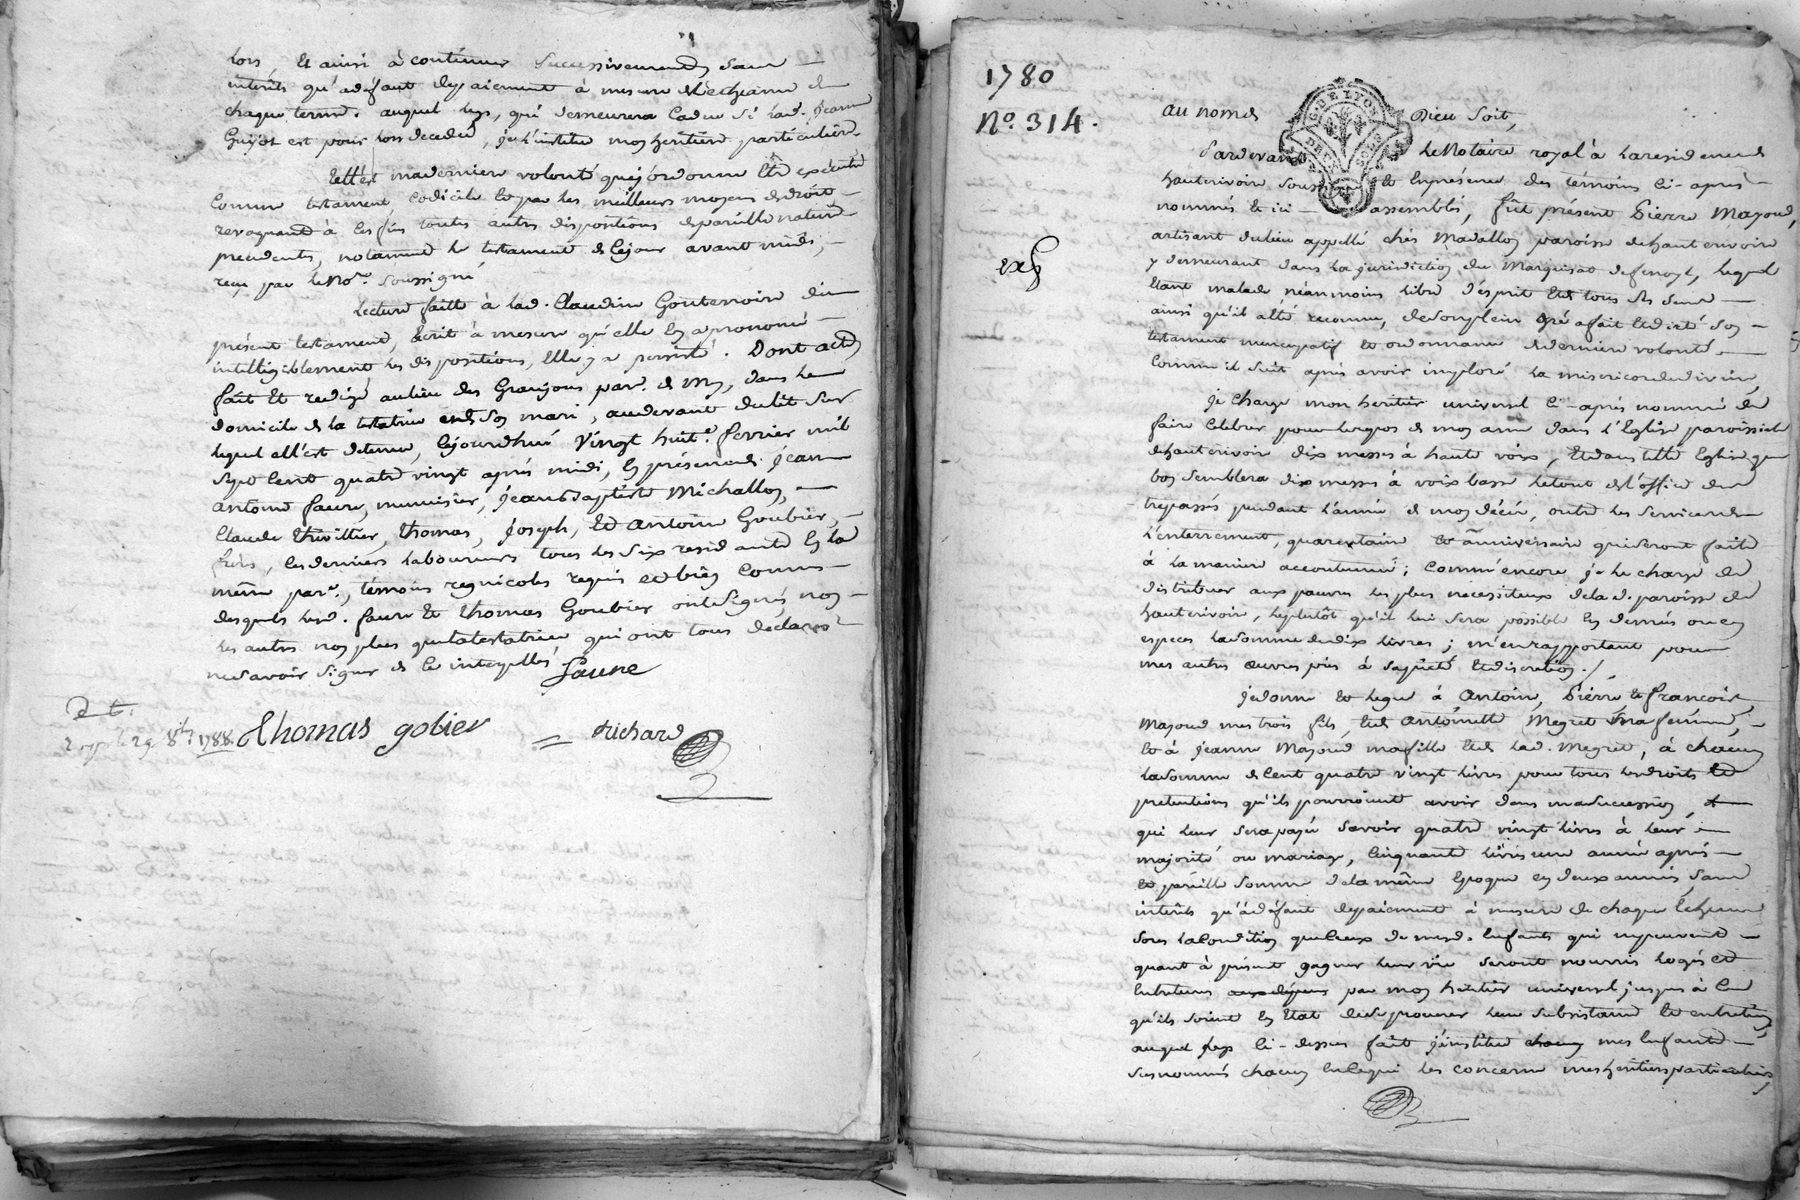 lors, et ainsi à continuer successivement sans
interêts qu'à défaut de paiement à mesure d'écheance de
chaque terme. auquel legs, qui demeurera caduc si lad. jeanne
Guyot est pour lors decedée, je l'institue mon heritiere particuliere.
telle est ma derniere volonté que j'ordonne etre executée
comme testament codicile et par les meilleurs moyens de droit
revoquant à ces fins toutes autres dispositions de pareille nature
precedentes, notamment le testament de ce jour avant midi,
reçu par le No.re soussigné
Lecture faitte à lad. Claudine Goutenoire du
présent testament, écrit à mesure qu'elle en a prononcé
intelligiblement les dispositions, elle y a persisté. Dont acte
fait et redigé au lieu des Granjons par. de My, dans le
domicile de la testatrice et de son mari, au devant du lit sur
lequel elle est detenue, cejourd'hui vingt huit.e fevrier mil
sept cent quatre vingt après midi, en présence de jean
antoine faure, menuisier, jean baptiste Michallon,
Claude thivillier, thomas, joseph, et antoine Goubier,
freres, ces derniers laboureurs tous les six residants en lad
même par.e, témoins regnicoles requis et bien connus
desquels lesd. faure et thomas Goubier ont signé, non
les autres non plus que la testatrice qui ont tous déclaré
ne savoir signer de ce interpellés
faure
thomas gobier = Richard
29 8bre 1788
1780
N.o 314.
G. DE LYON
DEUX SOLS
au nom de Dieu soit,
Pardevant le Notaire royal à la residence de
hauterivoire soussigné et en présence des témoins ci-après
nommés et ici assemblés, fût présent Pierre Mazoud,
artisant du lieu appellé chés Madallon paroisse de hauterivoire
y demeurant dans la jurisdiction du Marquisat de fenoyl, lequel
étant malade néanmoins libre d'esprit et de tous ses sens
ainsi qu'il a été reconnu, de son plein gré a fait et dicté son
testament nuncupatif et ordonnance de derniere volonté
comme il suit après avoir imploré la misericorde divine
exp
je charge mon heritier universel ci-après nommé de
faire celebrer pour le repos de mon ame dans l'Eglise paroissiale
de hauterivoire dix messes à haute voix, et dans telle Eglise que
bon semblera dix messes à voix basse le tout de l'office des
trepassés pendant l'année de mon décès, outre les services de
l'enterrement, quarantaine et anniversaire qui seront faits
à la maniere accoutumée; comm'encore je le charge de
distribuer aux pauvres les plus necessiteux de lad. paroisse de
hauterivoire, le plutôt qu'il lui sera possible en denrées ou en
especes la somme de dix livres; m'en rapportant pour
mes autres œuvres pies à sa pieté et discretion.
je donne et legue à antoine, Pierre et françois
Mazoud mes trois fils, et de antoinette Megret ma femme,
et à jeanne Mazoud ma fille et de lad. Megret, à chacun
la somme de cent quatre vingt livres pour tous les droits et
pretentions qu'ils pourroient avoir dans ma succession,
qui leur sera payée savoir quatre vingt livres à leur
majorité ou mariage, cinquante livres une année après
et pareille somme de la même epoque en deux années sans
interêts qu'à défaut de paiement à mesure de chaque écheance
sous la condition que ceux de mesd. enfants qui ne peuvent
quant à présent gagner leur vie seront nourris logés et
entretenus aux dépens par mon heritier universel jusques à ce
qu'ils soient en état de se procurer leur subsistance et entretien,
auquel legs ci-dessus fait j'institue chacun mes enfants
susnommés chacun en ce qui les concerne mes heritiers particuliers,